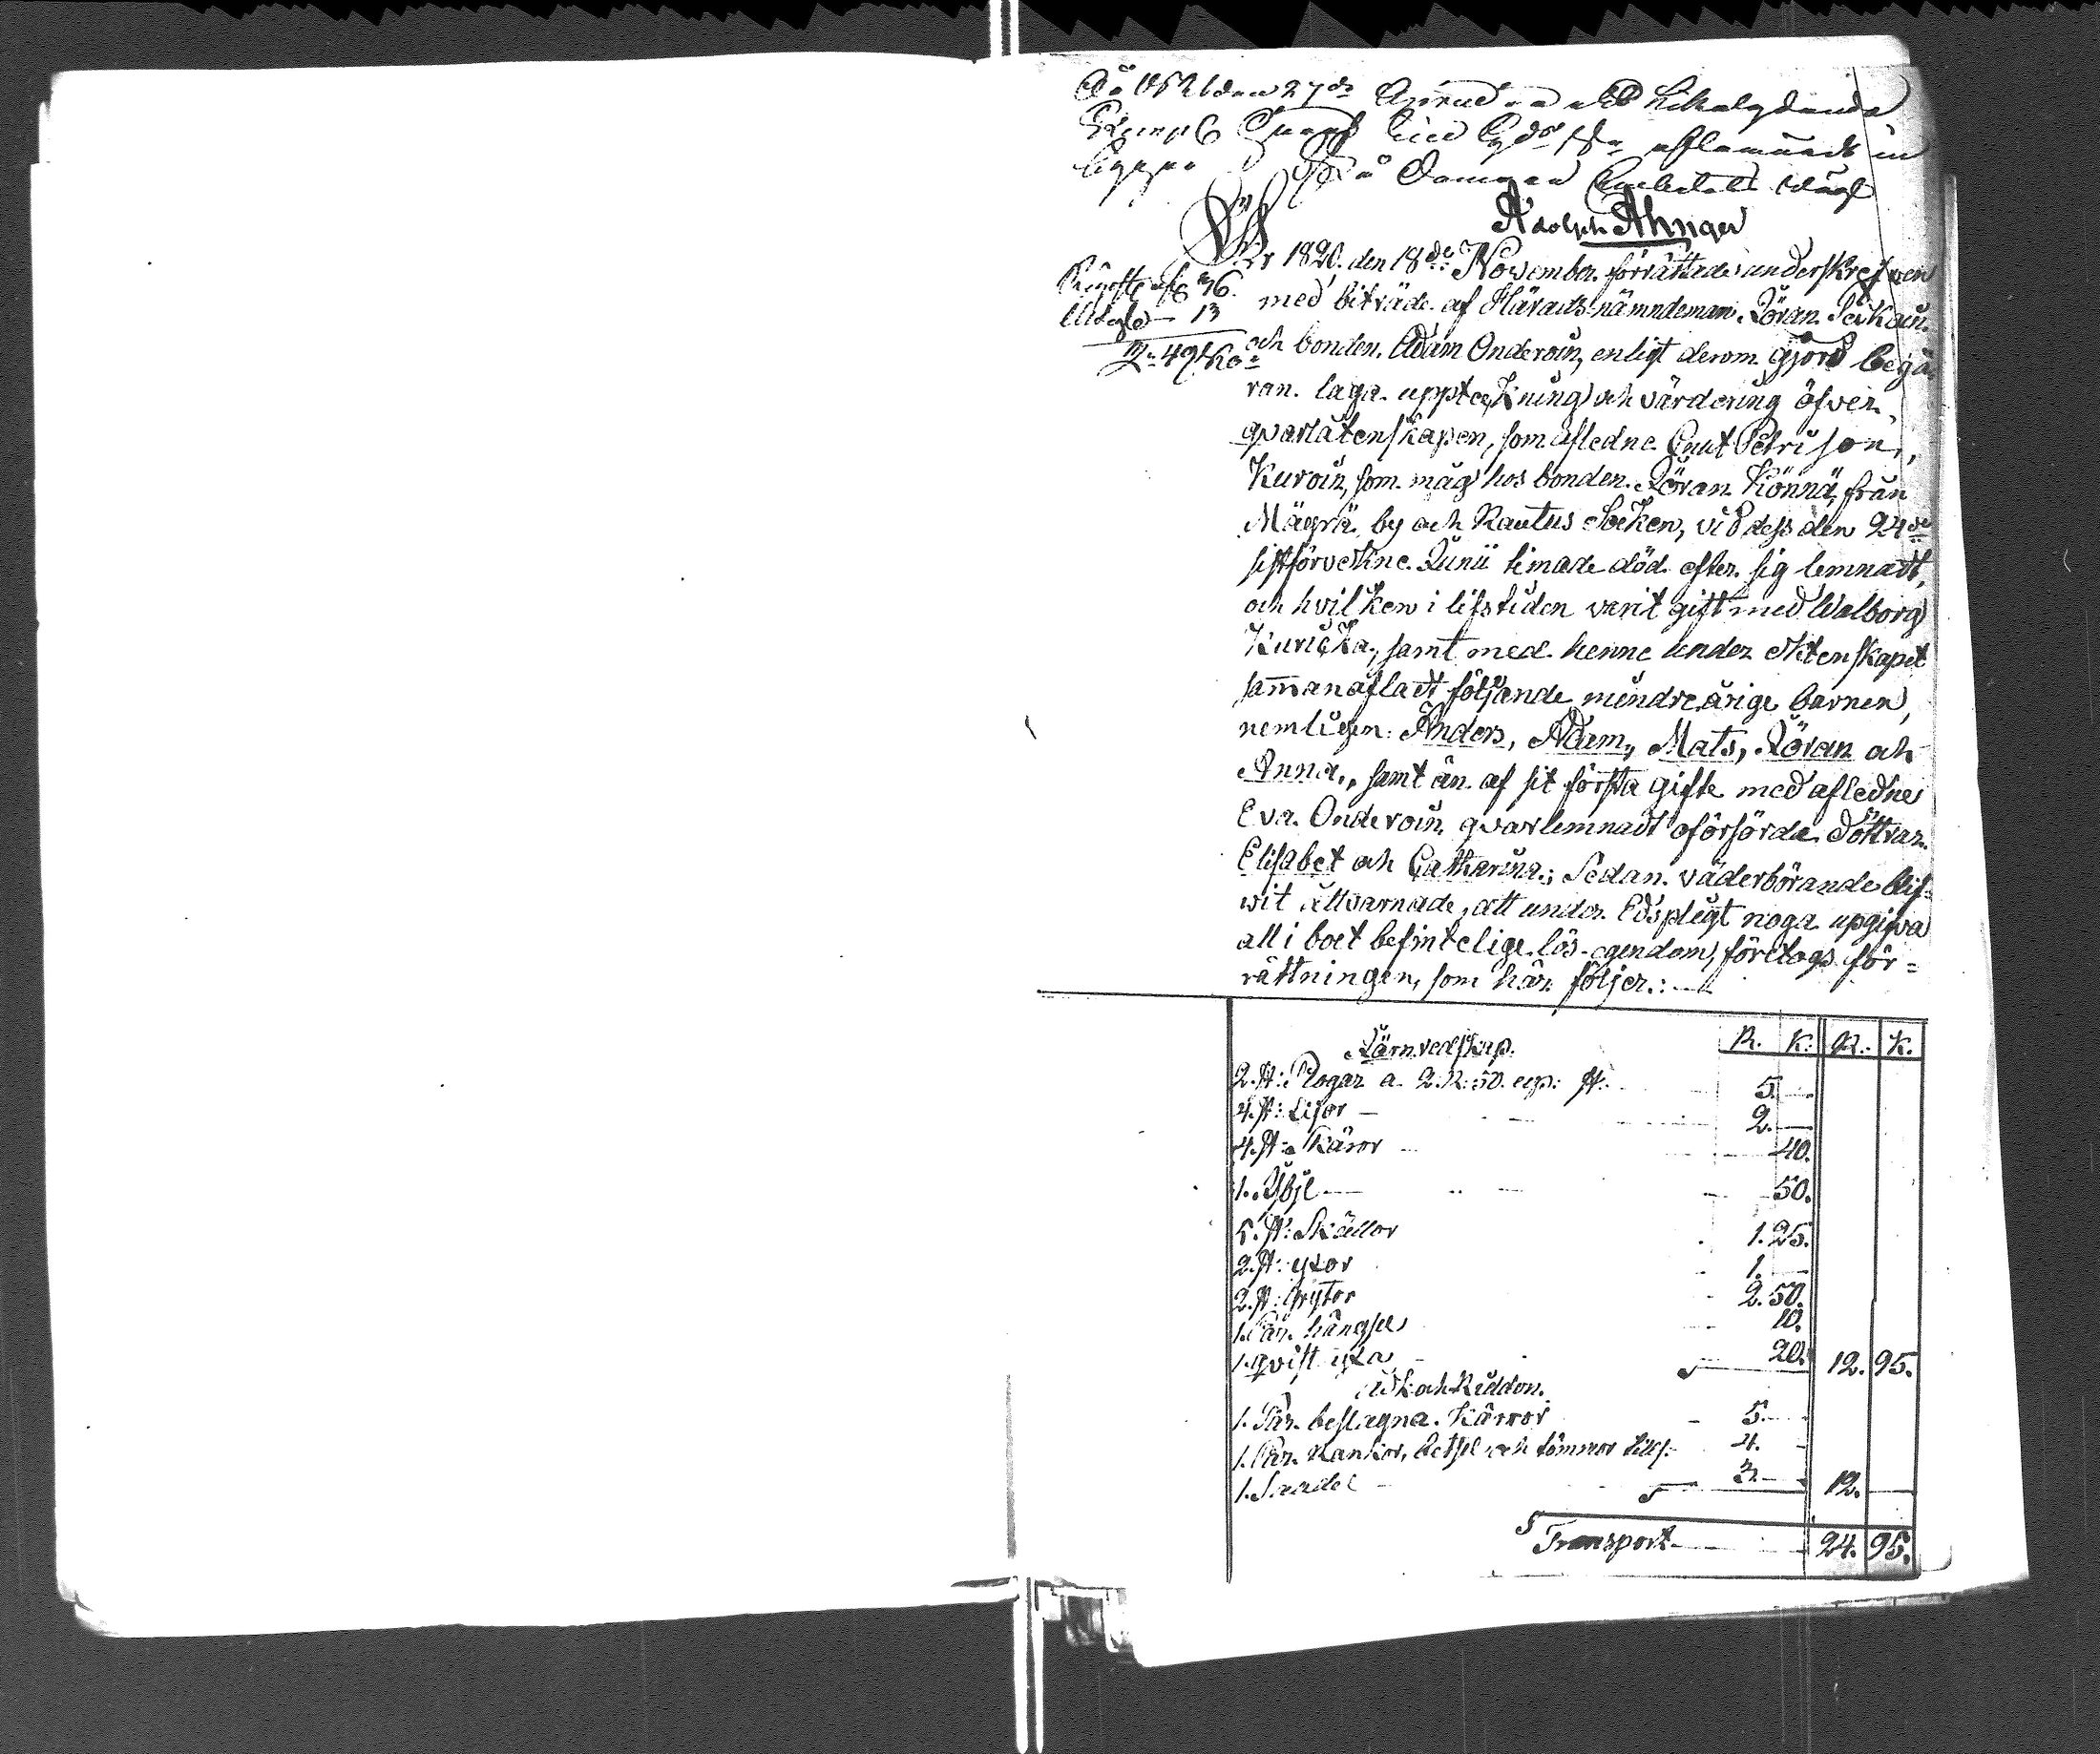 Likalydande
Adolph Ahnger
År 1820. den 18de November. förrättade underskrefven
med biträde af Härads-nämndeman Jöran
och bonden, Adam Onderoin, enligt derom gjord begä-
ran. laga. uppteckning och värdering öfver
qvarlåtenskapen, som afledne. Cnut Petrison,
Kuroin, som. måg hos bonden. Jöran Könnä, från
Mägrä. by och Rautus Socken, vid dess den 24de
sistförvekne. Junii timade död. efter. sig lemnadt,
och hvilken i lifstiden varit gift med Walborg
samt med. henne under ektenskapet
sam̅anafladt följande minderårige barnen,
nemligen: Anders, Adam, Mats, Jöran och
Anna., samt än. af sit första gifte med afledne
Eva. Onderoin, qvarlemnadt oförsörda. döttrar.
Elisabet och Catharina.; Sedan. väderbörande blif-
wit åtvarnade, att under. Edsplegt noga upgifva
all i boet befintelige. lös-egendom, företogs för=
rättningen, som här. följer.:
Järnvedskap. R. K. R. K.
2. st: Plogar a. 2. R: 50. cop: st: 5. —
4. st: Lijor — 2. —
4. st: Skäror 40.
1. 50.
5. st: Skällor 1. 25.
2. st: yxor 1. —
2. st: Grytor 2. 50.
1. Par. hängsel 10.
1. qvist yxa 20. 12. 95.
Åk och Riddon.
1. Par. beslagna. Kärror 5. —
1. Par. Rankor, betsel och tömmar 4. —
1. Sadel 3. — 12. —
S Transport 24. 95.